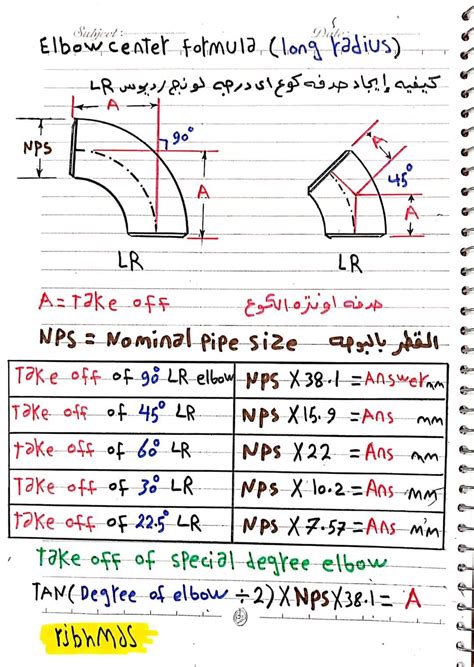 Subject: Date:
Elbow center formula (long radius)
كيفيه إيجاد حدفه كوع اي درجه لونج رديوس LR
A
90°
NPS
A
LR
A
45°
A
LR
A = Take off حدفه او نزه الكوع
NPS = Nominal pipe size القطر بالبوصه
Take off of 90° LR elbow NPS X 38.1 = Answer mm
Take off of 45° LR NPS X 15.9 = Ans mm
Take off of 60° LR NPS X 22 = Ans mm
Take off of 30° LR NPS X 10.2 = Ans mm
Take off of 22.5° LR NPS X 7.57 = Ans mm
Take off of special degree elbow
TAN (Degree of elbow ÷ 2) X NPS X 38.1 = A